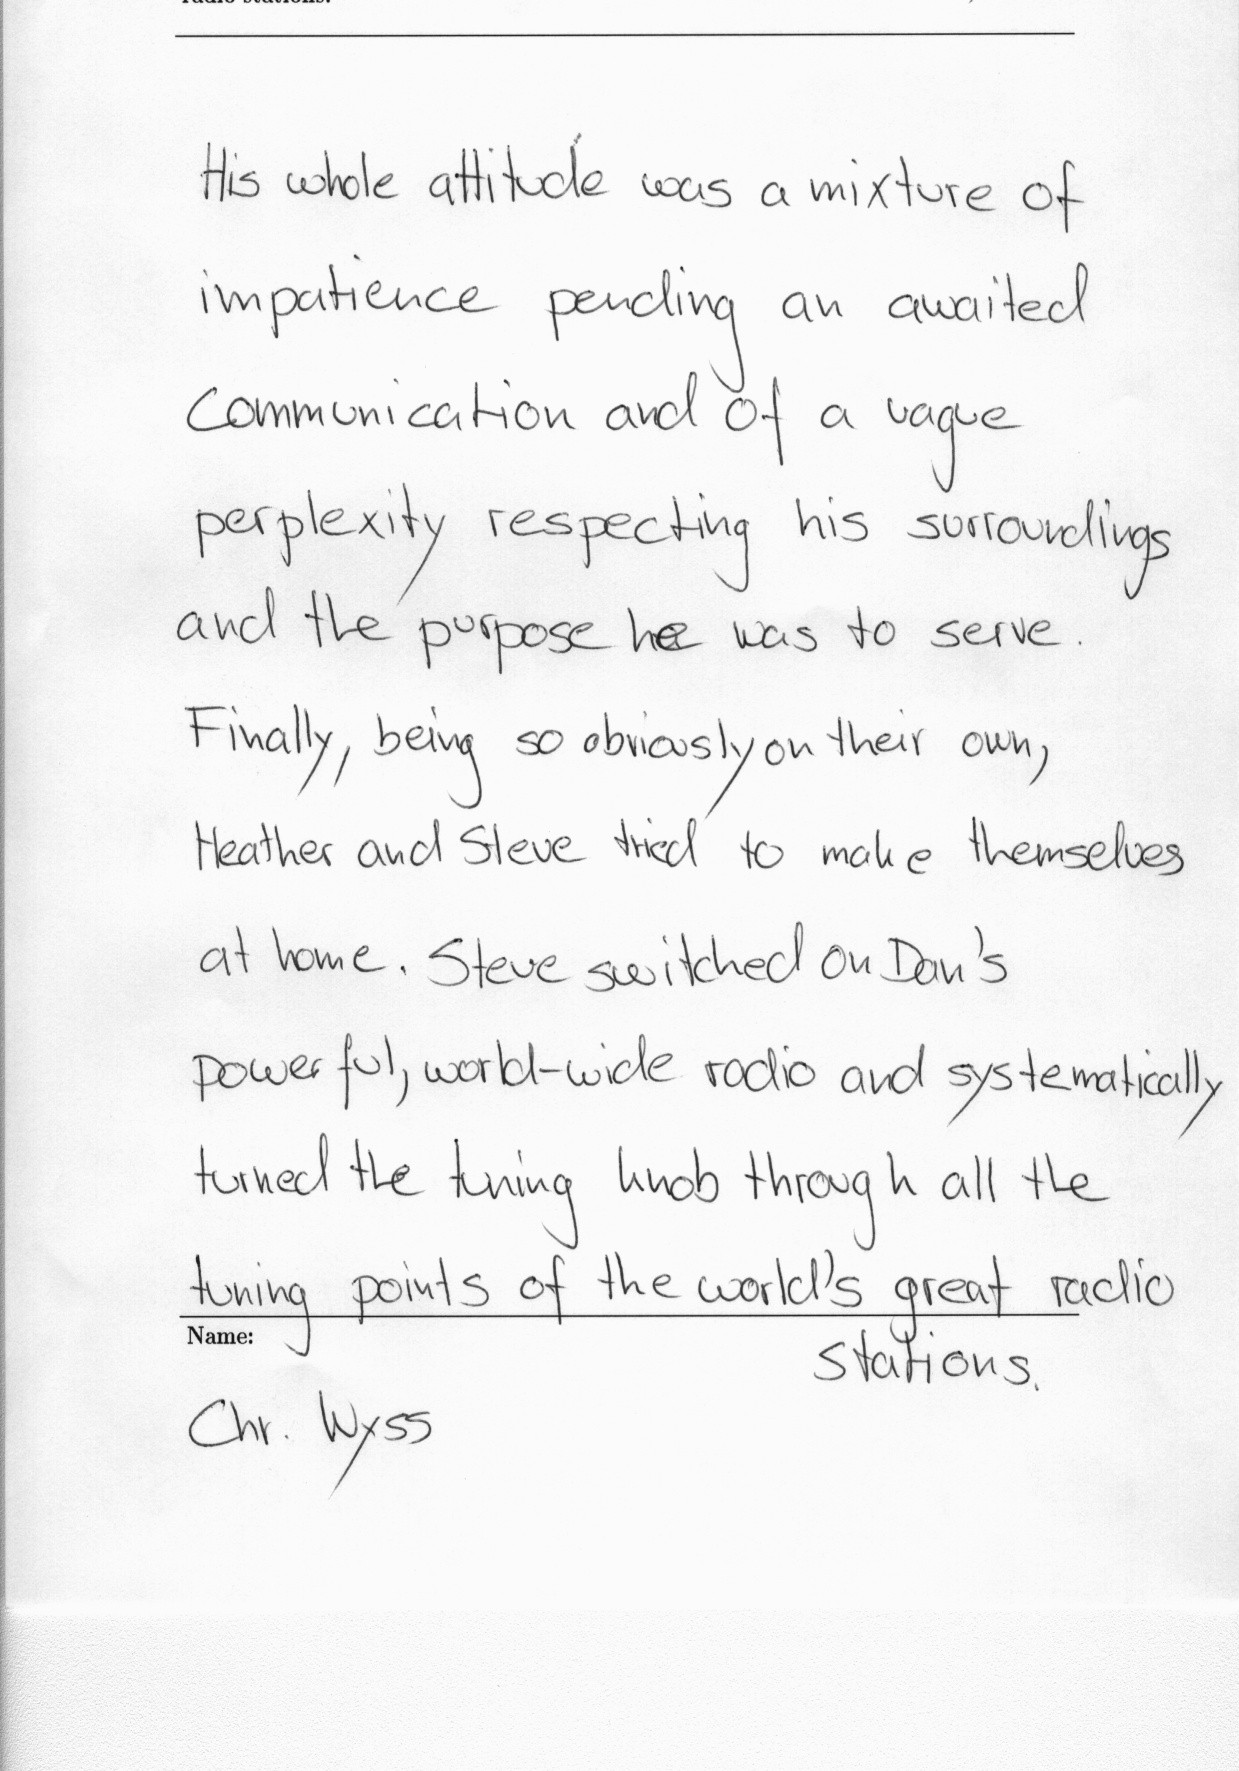 radio stations.
His whole attitude was a mixture of
impatience pending an awaited
communication and of a vague
perplexity respecting his surroundings
and the purpose he was to serve.
Finally, being so obviously on their own,
Heather and Steve tried to make themselves
at home. Steve switched on Dan's
powerful, world-wide radio and systematically
turned the tuning knob through all the
tuning points of the world's great radio
stations.
Name:
Chr. Wyss